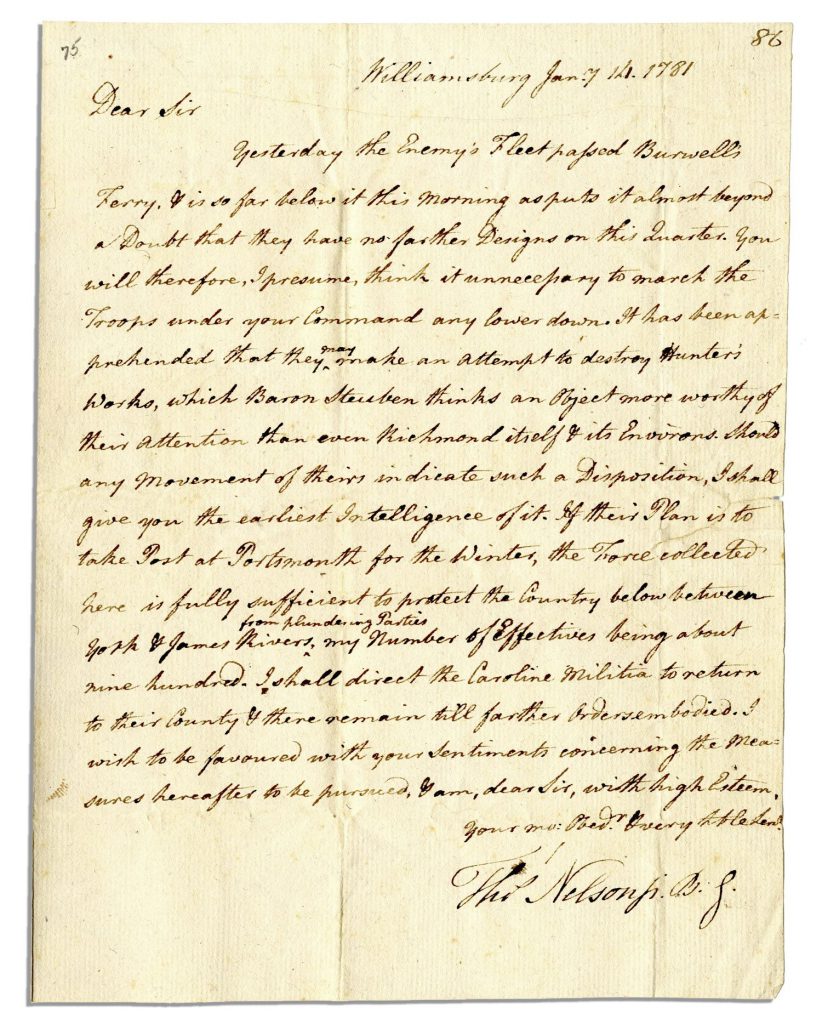 75
86
Williamsburg Jany 14. 1781
Dear Sir
Yesterday the Enemy's Fleet passed Burwell's
Ferry, & is so far below it this Morning as puts it almost beyond
a Doubt that they have no farther Designs on this Quarter. You
will therefore, I presume, think it unnecessary to march the
Troops under your Command any lower down. It has been ap=
prehended that they may make an attempt to destroy Hunter's
Works, which Baron Steuben thinks an Object more worthy of
their Attention than even Richmond itself & its Environs. Should
any Movement of theirs indicate such a Disposition, I shall
give you the earliest Intelligence of it. If their Plan is to
take Post at Portsmouth for the Winter, the Force collected
here is fully sufficient to protect the Country below between
from plundering Parties
York & James Rivers, my Number of Effectives being about
nine hundred. I shall direct the Caroline Militia to return
to their County & there remain till farther Orders embodied. I
wish to be favoured with your Sentiments concerning the Mea=
sures hereafter to be pursued, & am, dear Sir, with high Esteem,
Your mo: Obedt. & very hble Servt.
Thos Nelson jr. B. G.